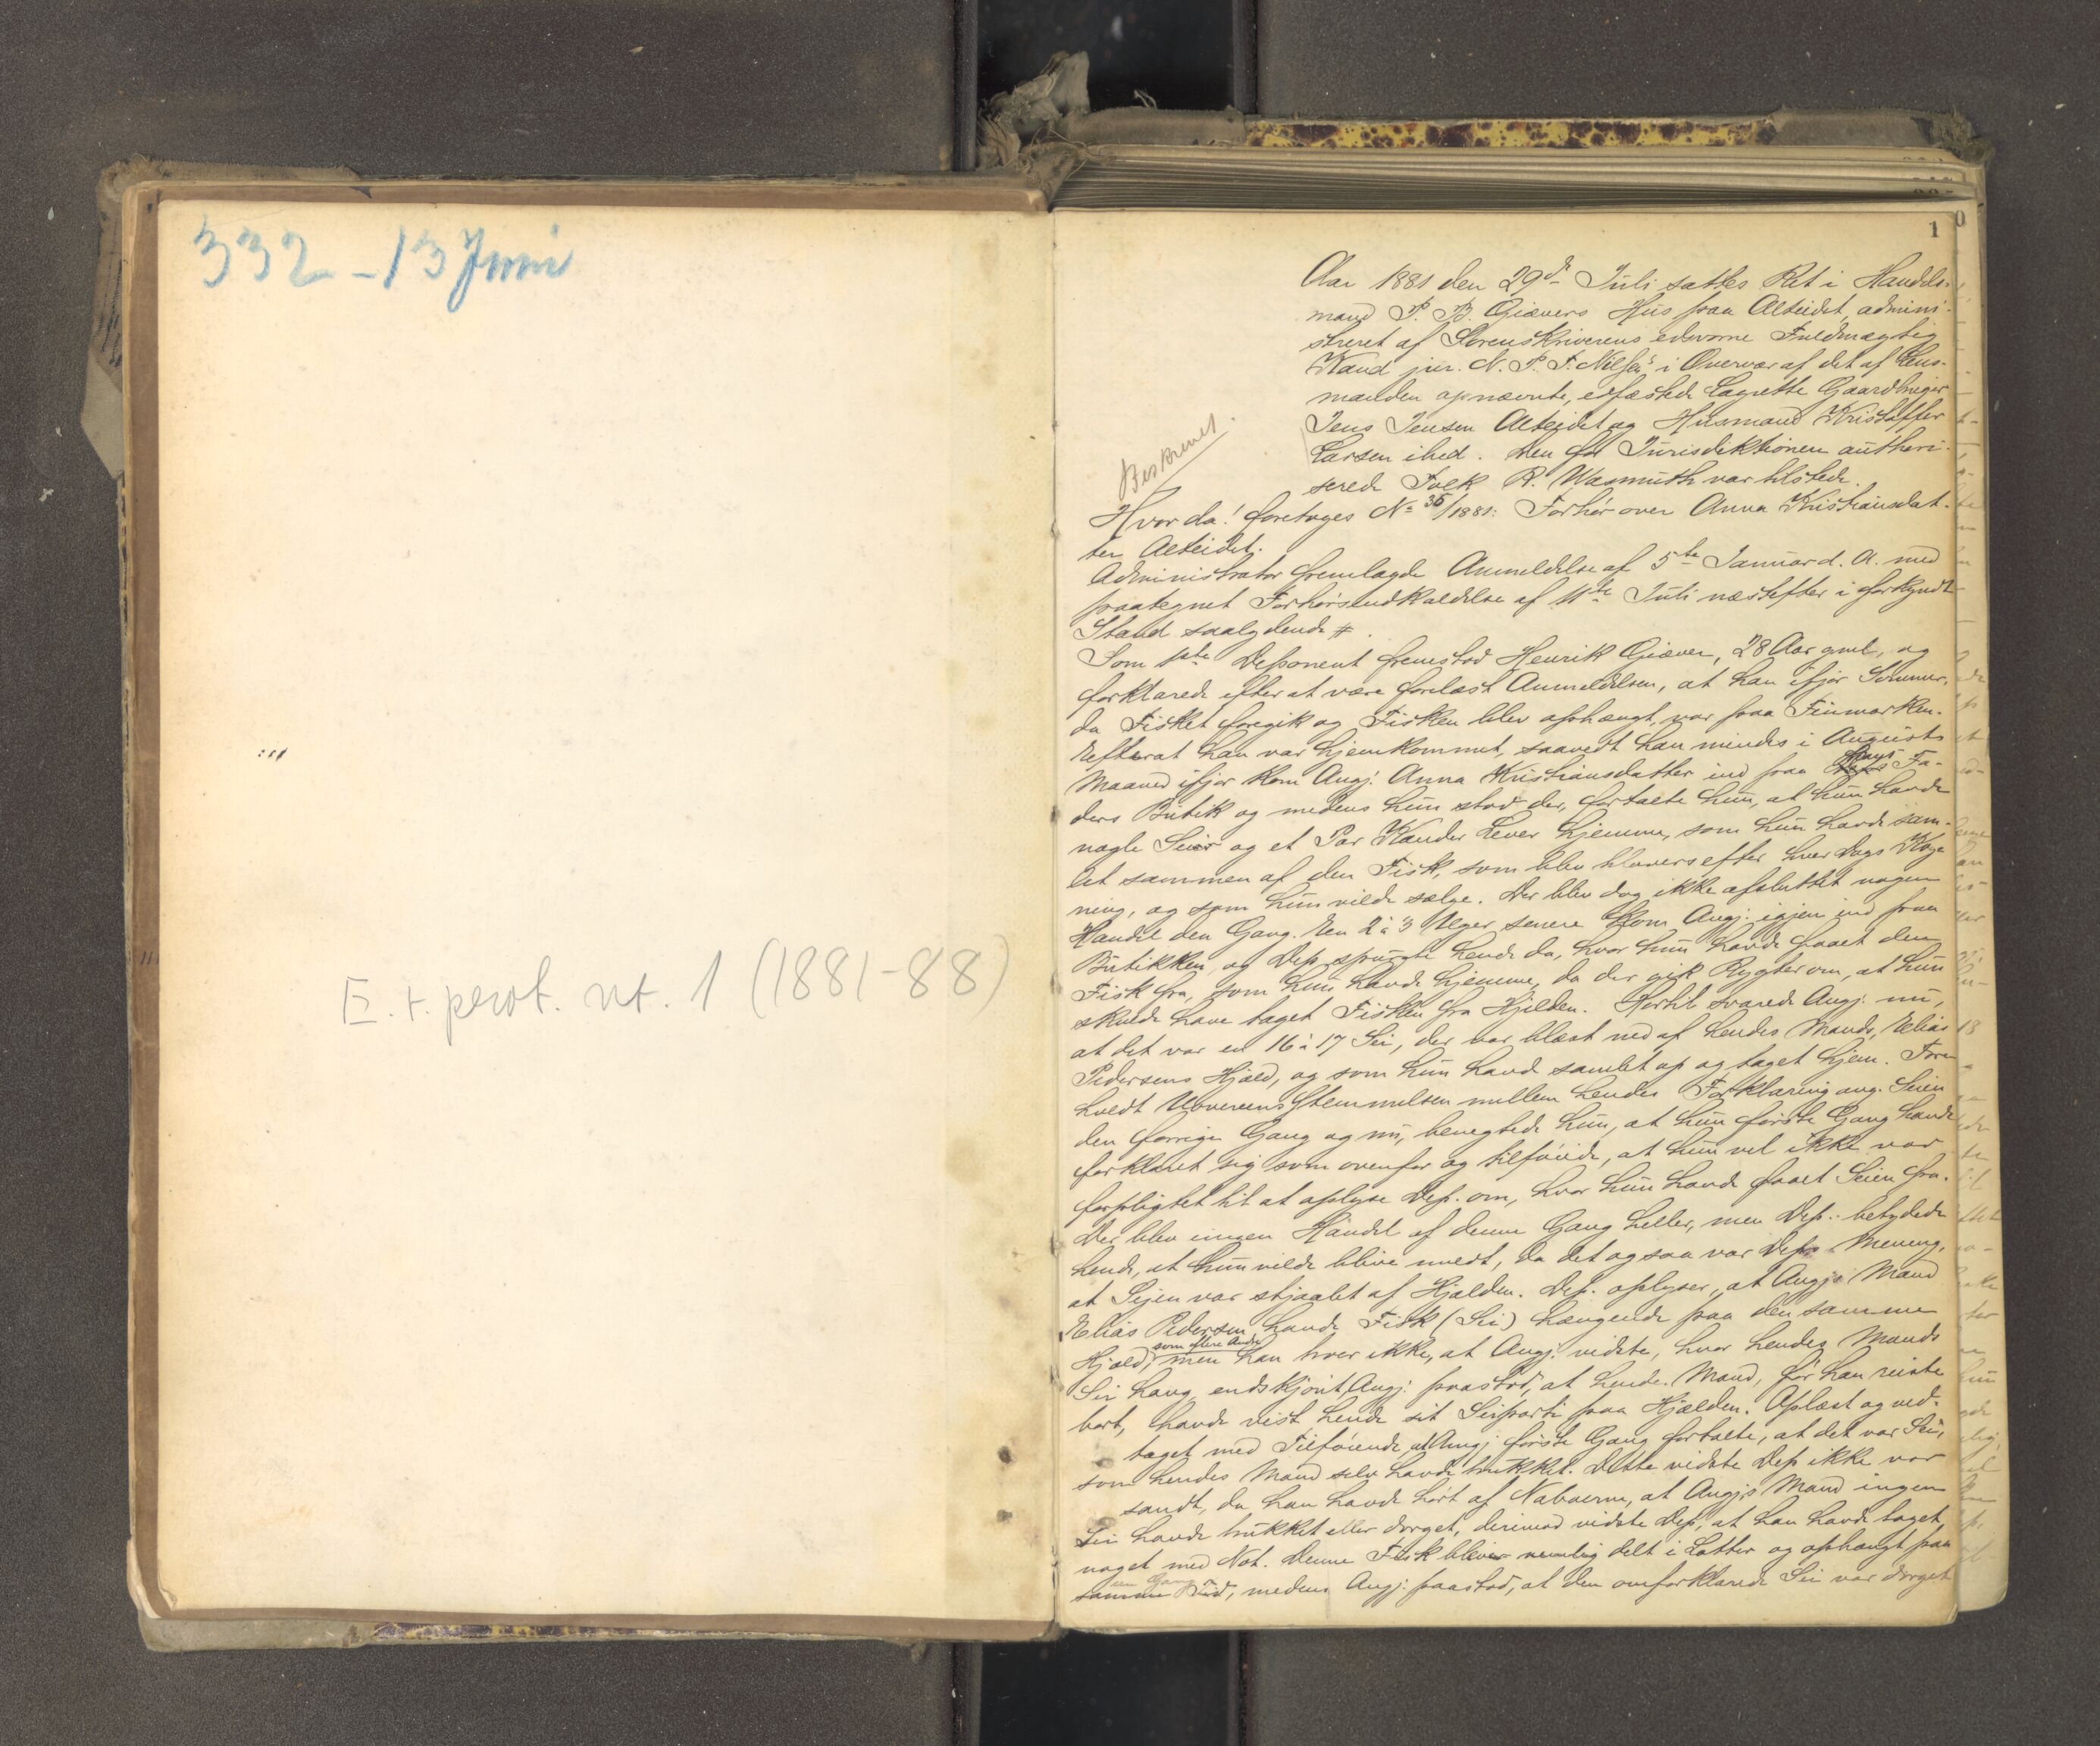 332 - 13 Juni
E. r. prot. nr. 1 (1881-88)
1
Aar 1881 den 29de Juli sattes Ret i Handels-
mand P. B. Giævers Hus paa Alteidet, admini-
streret af Sorenskriverens edsvorne Fuldmægtig
Kand jur. N. P. F. Nilsen i Overvær af det af Lens-
manden opnævnte, edfæstede Lagrette Gaardbruger
Jens Jensen Alteidet og Husmand Kristoffer
Larsen ibid. Den for Jurisdiktionen authori-
serede Tolk R. Wasmuth var tilstede.
Beskrevet.
Hvor da! foretoges No 35/1881: Forhør over Anna Kristiansdat-
ter Alteidet.
Administrator fremlagde Anmeldelse af 5te Januar d. A. med
paategnet Forhørsindkaldelse af 11te Juli næstefter i forkyndt
Stand saalydende #.
Som 1ste Deponent fremstod Henrik Giæver, 28 Aar gml, og
forklarede efter at være forelæst Anmeldelsen, at han ifjor Sommer,
da Fisket foregik og Fisken blev ophængt, var paa Finmarken.
Efterat han var hjemkommet, saavidt han mindes i Augusts
Maaned ifjor kom Angj. Anna Kristiansdatter ind paa Hans Fa-
ders Butik og medens hun stod der, fortalte hun, at hun havde
nogle Seier og et Par Kander Lever hjemme, som hun havde sam-
let sammen af den Fisk, som blev tilovers efter hver Dags Kog-
ning, og som hun vilde sælge. Der blev dog ikke afsluttet nogen
Handel den Gang. En 2 à 3 Uger senere kom Angj. igjen ind paa
Butikken, og Dep. spurgte hende da, hvor hun havde faaet den
Fisk fra, som hun havde hjemme, da der gik Rygter om, at hun
skulde have taget Fisken fra Hjelden. Hertil svarede Angj. nu,
at det var en 16 à 17 Sei, der var blæst ned af hendes Mands, Elias
Pedersens Hjæld, og som hun havde samlet op og taget hjem. Fore-
holdt Uoverensstemmelsen mellem hendes Forklaring ang. Seien
den forrige Gang og nu, benegtede hun, at hun første Gang havde
forklaret sig som ovenfor og tilføiede, at hun vel ikke var
forpligtet til at oplyse Dep. om, hvor hun havde faaet Seien fra.
Der blev ingen Handel af denne Gang heller, men Dep. betydede
hende, at hun vilde blive meldt, da det ogsaa var Deps Mening,
at Sejen var stjaalet af Hjælden. Dep. oplyser, at Angjs Mand
Elias Pedersen havde Fisk (Sei) hængende paa den samme
som flere Andre
Hjæld, men han tror ikke, at Angj. vidste, hvor hendes Mands
Sei hang, endskjønt Angj. paastod, at hendes Mand, før han reiste
bort, havde vist hende sit Seiparti paa Hjælden. Oplæst og ved-
taget med Tilføiende, at Angj første Gang fortalte, at det var Sei,
som hendes Mand selv havde trukket. Dette vidste Dep ikke var
sandt, da han havde hørt af Naboerne, at Angjs Mand ingen
Sei havde trukket eller dorget, derimod vidste Dep, at han havde taget
noget med Not. Denne Fisk bliver nemlig delt i Lotter og ophængt paa
een Gang
samme Tid, medens Angj. paastod, at den omforklarede Sei var dorget